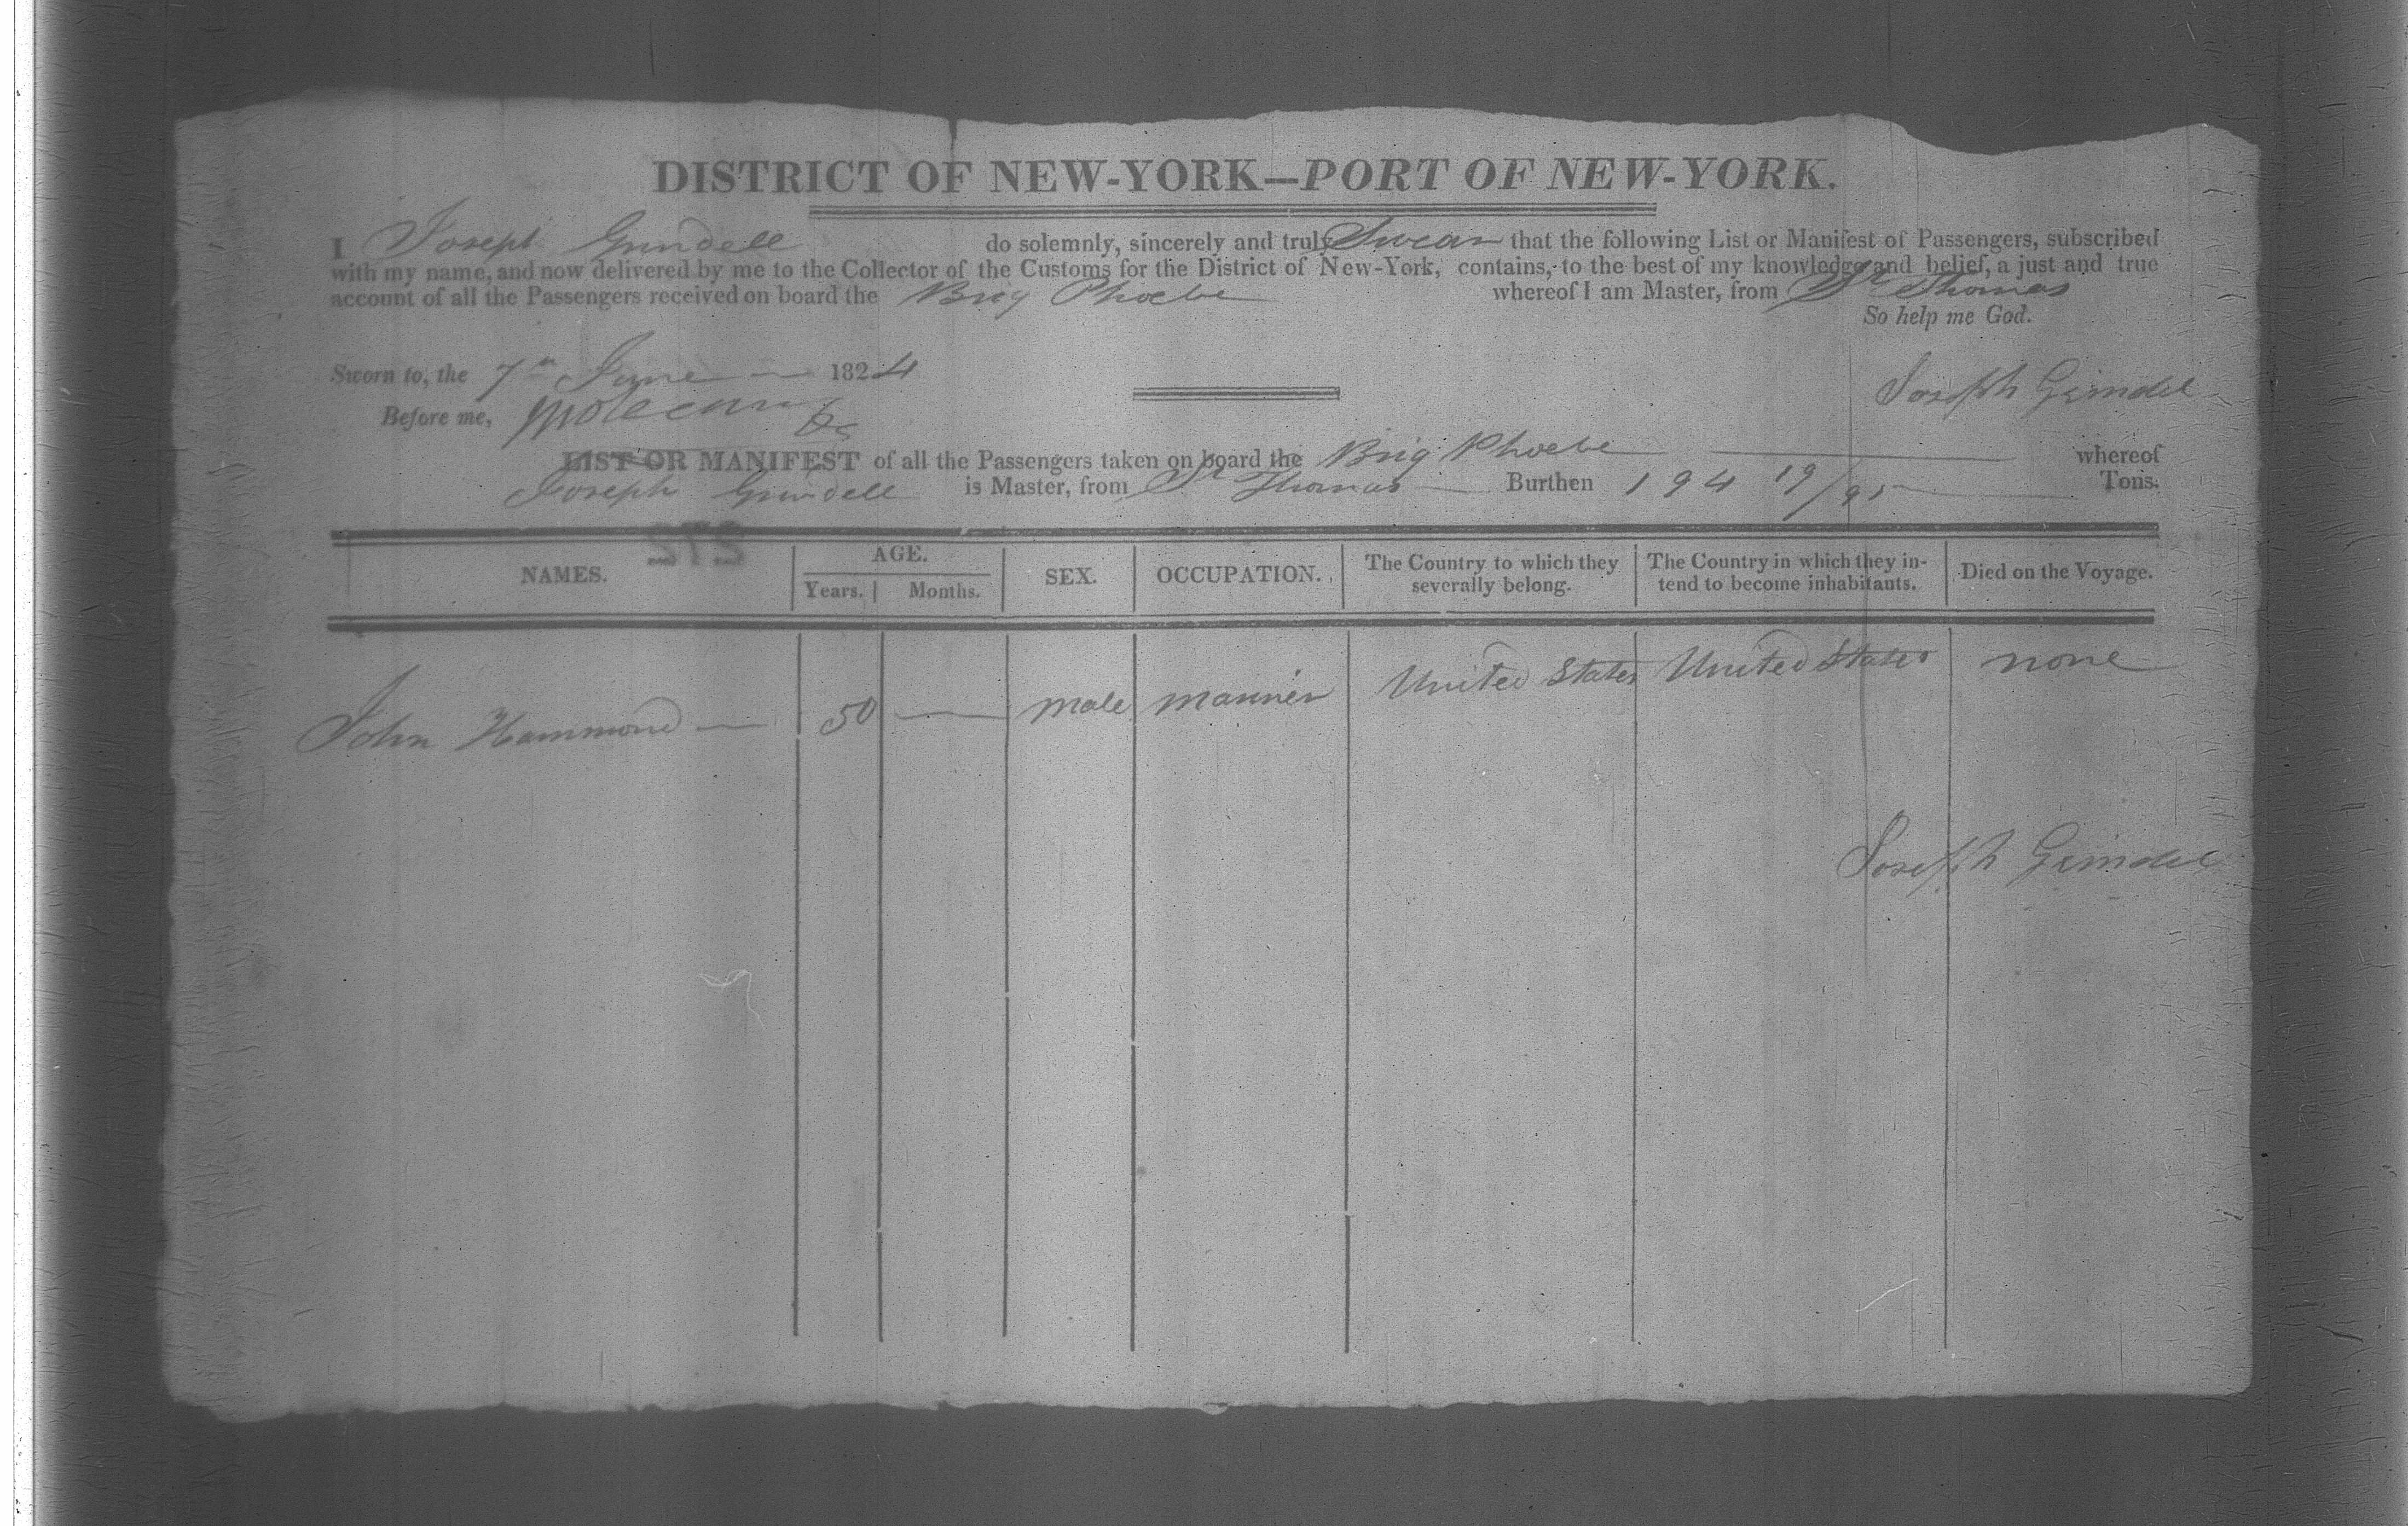 DISTRICT OF NEW-YORK—PORT OF NEW-YORK.
I Joseph Grindell do solemnly, sincerely and truly Swear that the following List or Manifest of Passengers, subscribed
with my name, and now delivered by me to the Collector of the Customs for the District of New-York, contains, to the best of my knowledge and belief, a just and true
account of all the Passengers received on board the Brig Phoebe whereof I am Master, from St Thomas
So help me God.
Sworn to, the 7th June — 1824
Joseph Grindel
Before me,
LIST OR MANIFEST of all the Passengers taken on board the Brig Phoebe whereof
Joseph Grindell is Master, from St Thomas Burthen 194 19/95 Tons.
272
NAMES. AGE. Years. Months. SEX. OCCUPATION. The Country to which they severally belong. The Country in which they intend to become inhabitants. Died on the Voyage.
John Hammond — 50 — male mariner United States United States none
Joseph Grindel